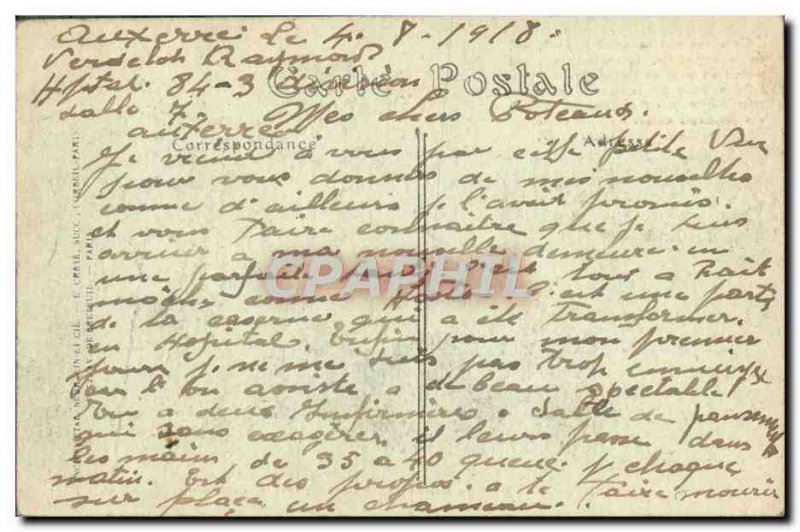 Auxerre le 4. 8. 1918.
Verdelot Raymond
Carte Postale
Hptal. 84-3 division
salle 7. Mes chers Poteaux.
auxerre
Correspondance Adresse
Je viens à vous par cette petite vue
pour vous donnés de mes nouvelles
comme d'ailleurs je l'avait promis.
et vous faire connaitre que je suis
arriver a ma nouvelle demeure. en
une parfaite c'est tous a fait
moche comme c'est une partie
de la caserne qui a été transformer
en Hopital. Enfin pour mon premier
jour je ne me suis pas trop ennuiyé
car l'on assiste a de beau spectable
On a deux Infirmières a salle de pansements
qui sans exagérer il leurs passe dans
les mains de 35 a 40 queue p chaque
matin. Est des propos a te faire mourir
sur place un chameau.
CPAPHIL